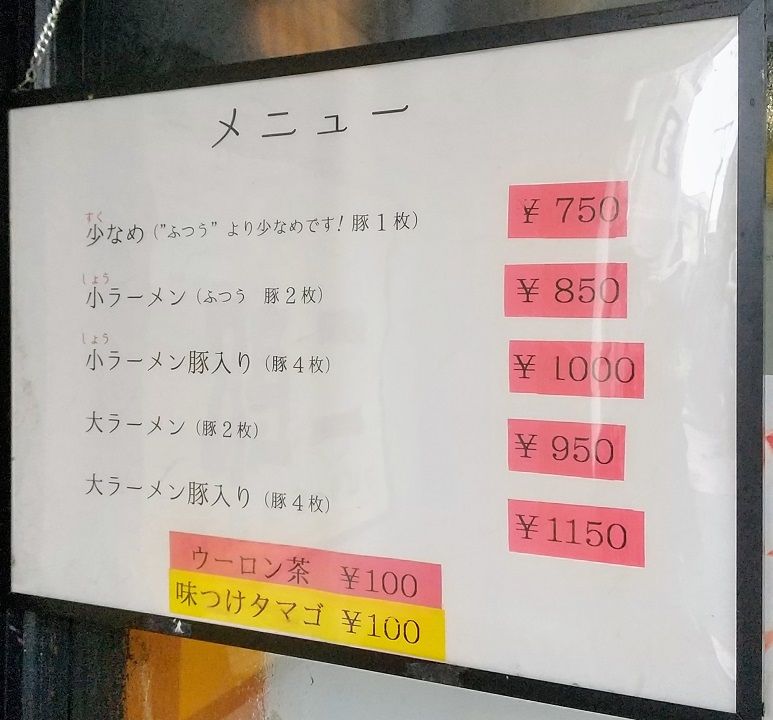 メニュー
すく
少なめ（"ふつう"より少なめです！豚1枚） ¥750
しょう
小ラーメン（ふつう　豚2枚） ¥850
しょう
小ラーメン豚入り（豚4枚） ¥1000
大ラーメン（豚2枚） ¥950
大ラーメン豚入り（豚4枚） ¥1150
ウーロン茶　¥100
味つけタマゴ ¥100